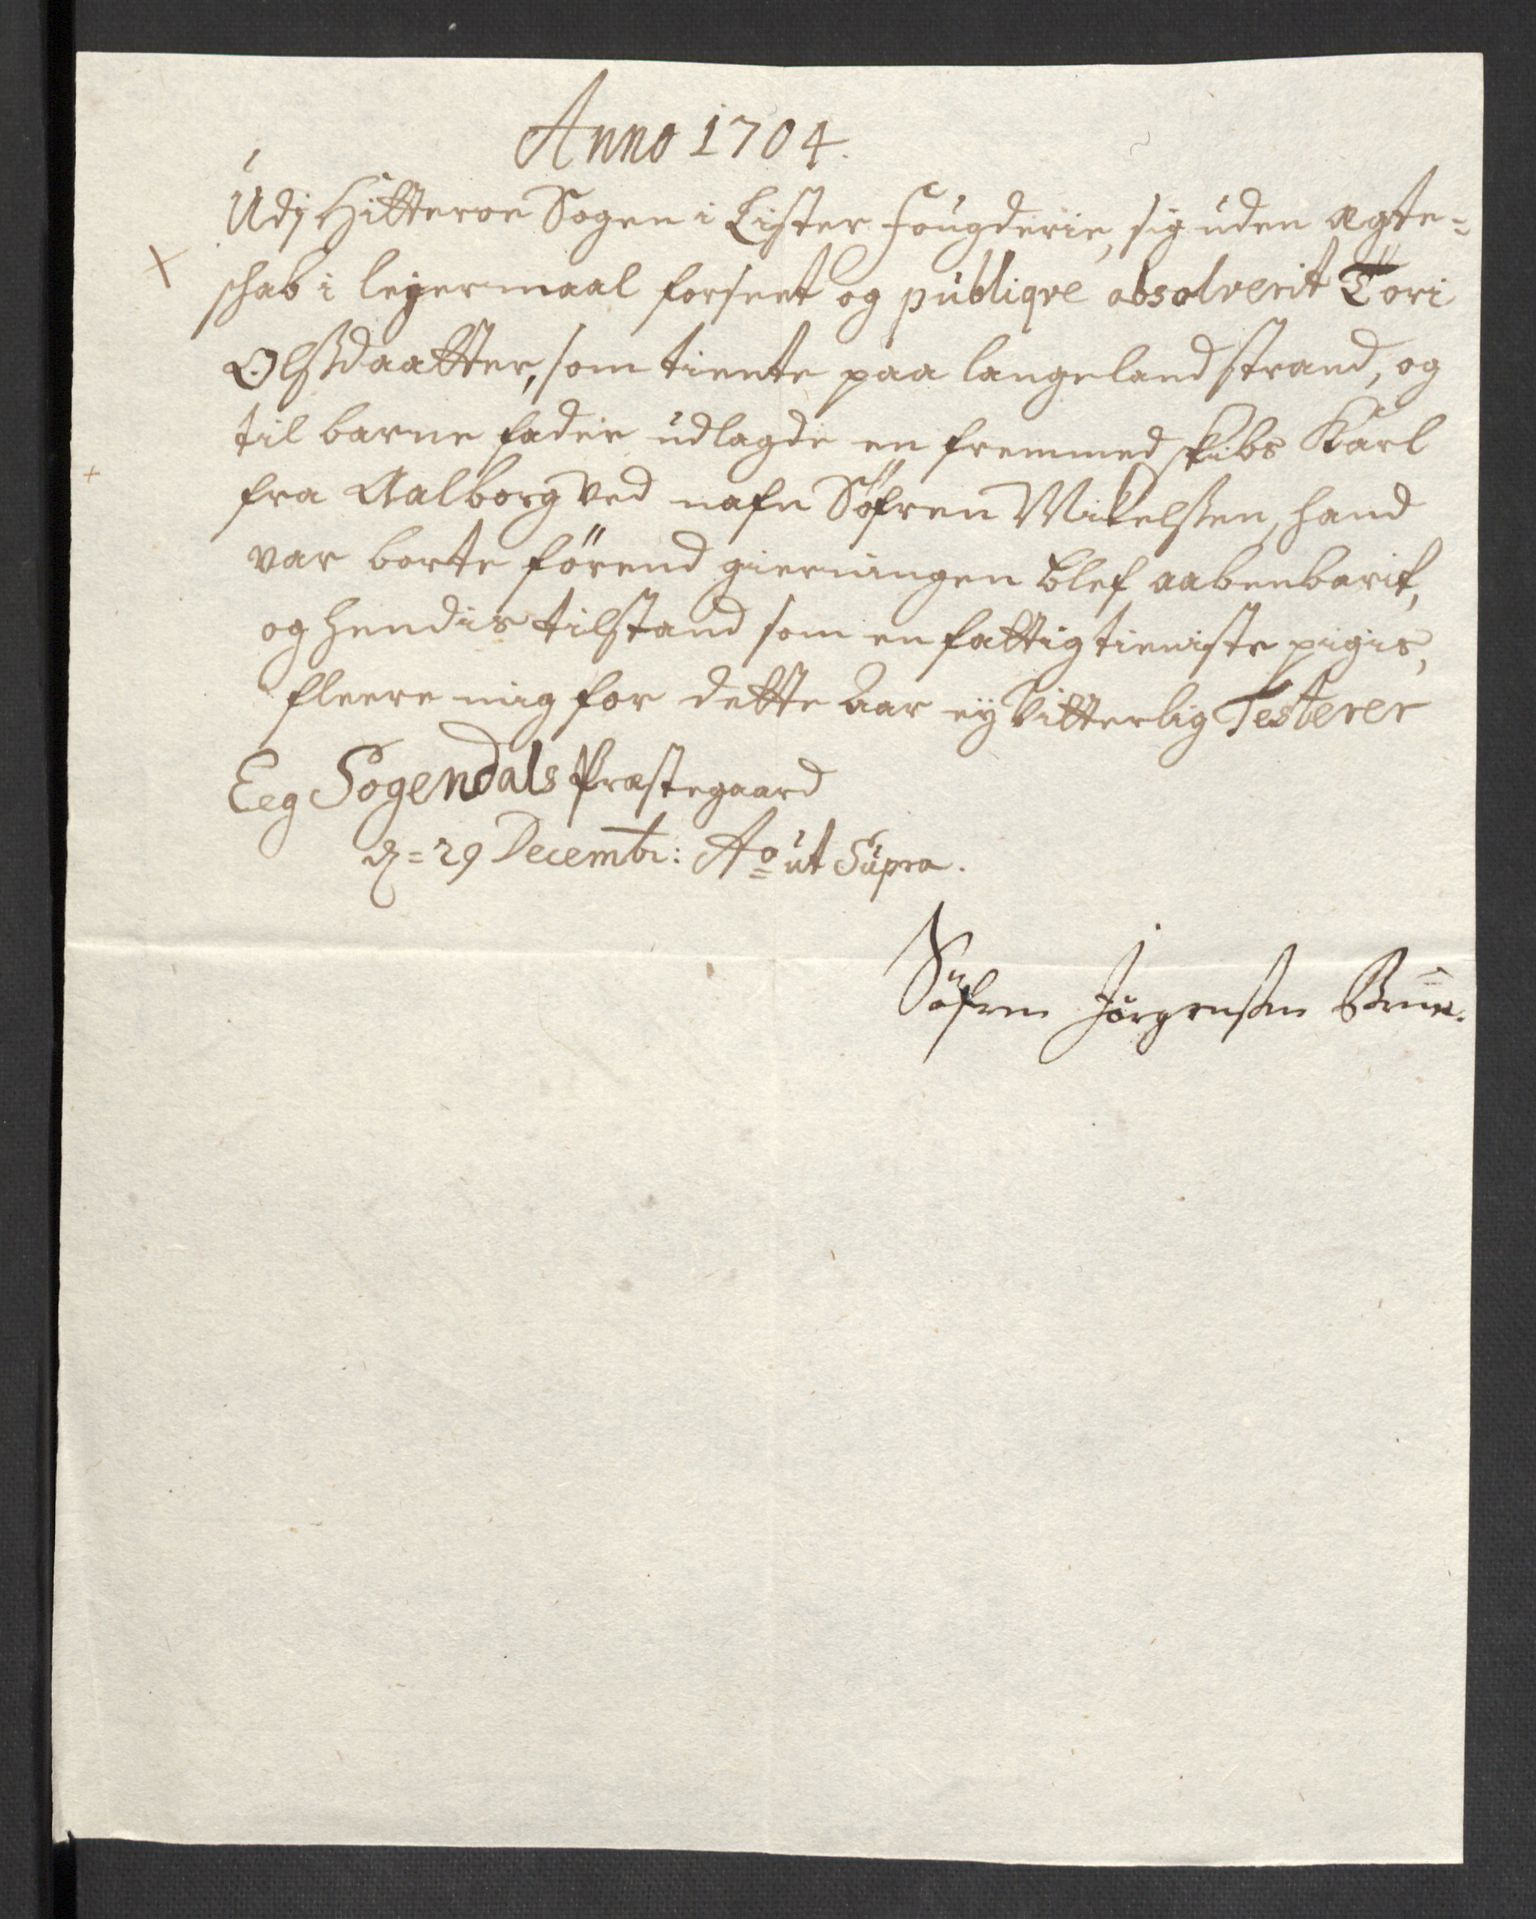 Anno 1704.
Udj Hitteroe Sogen i Lister fougderie, sig uden ægte=
schab i leyermaal forseet og publiqve absolverit Töri
Olssdaatter, som tiente paa langeland strand, og
til barne fader udlagde en fremmed skibs Karl
fra Aalborg ved nafn Söfren Mikelssen, hand
var borte förend gierningen blef aabenbarit,
og hendis tilstand som en fattig tieniste pigis,
fleere mig for dette Aar ey vitterlig Testerer
Eeg Sogendals Præstegaard
d= 29 Decembr: Ao ut Supra.
Söfren Jörgenssen Bruu.